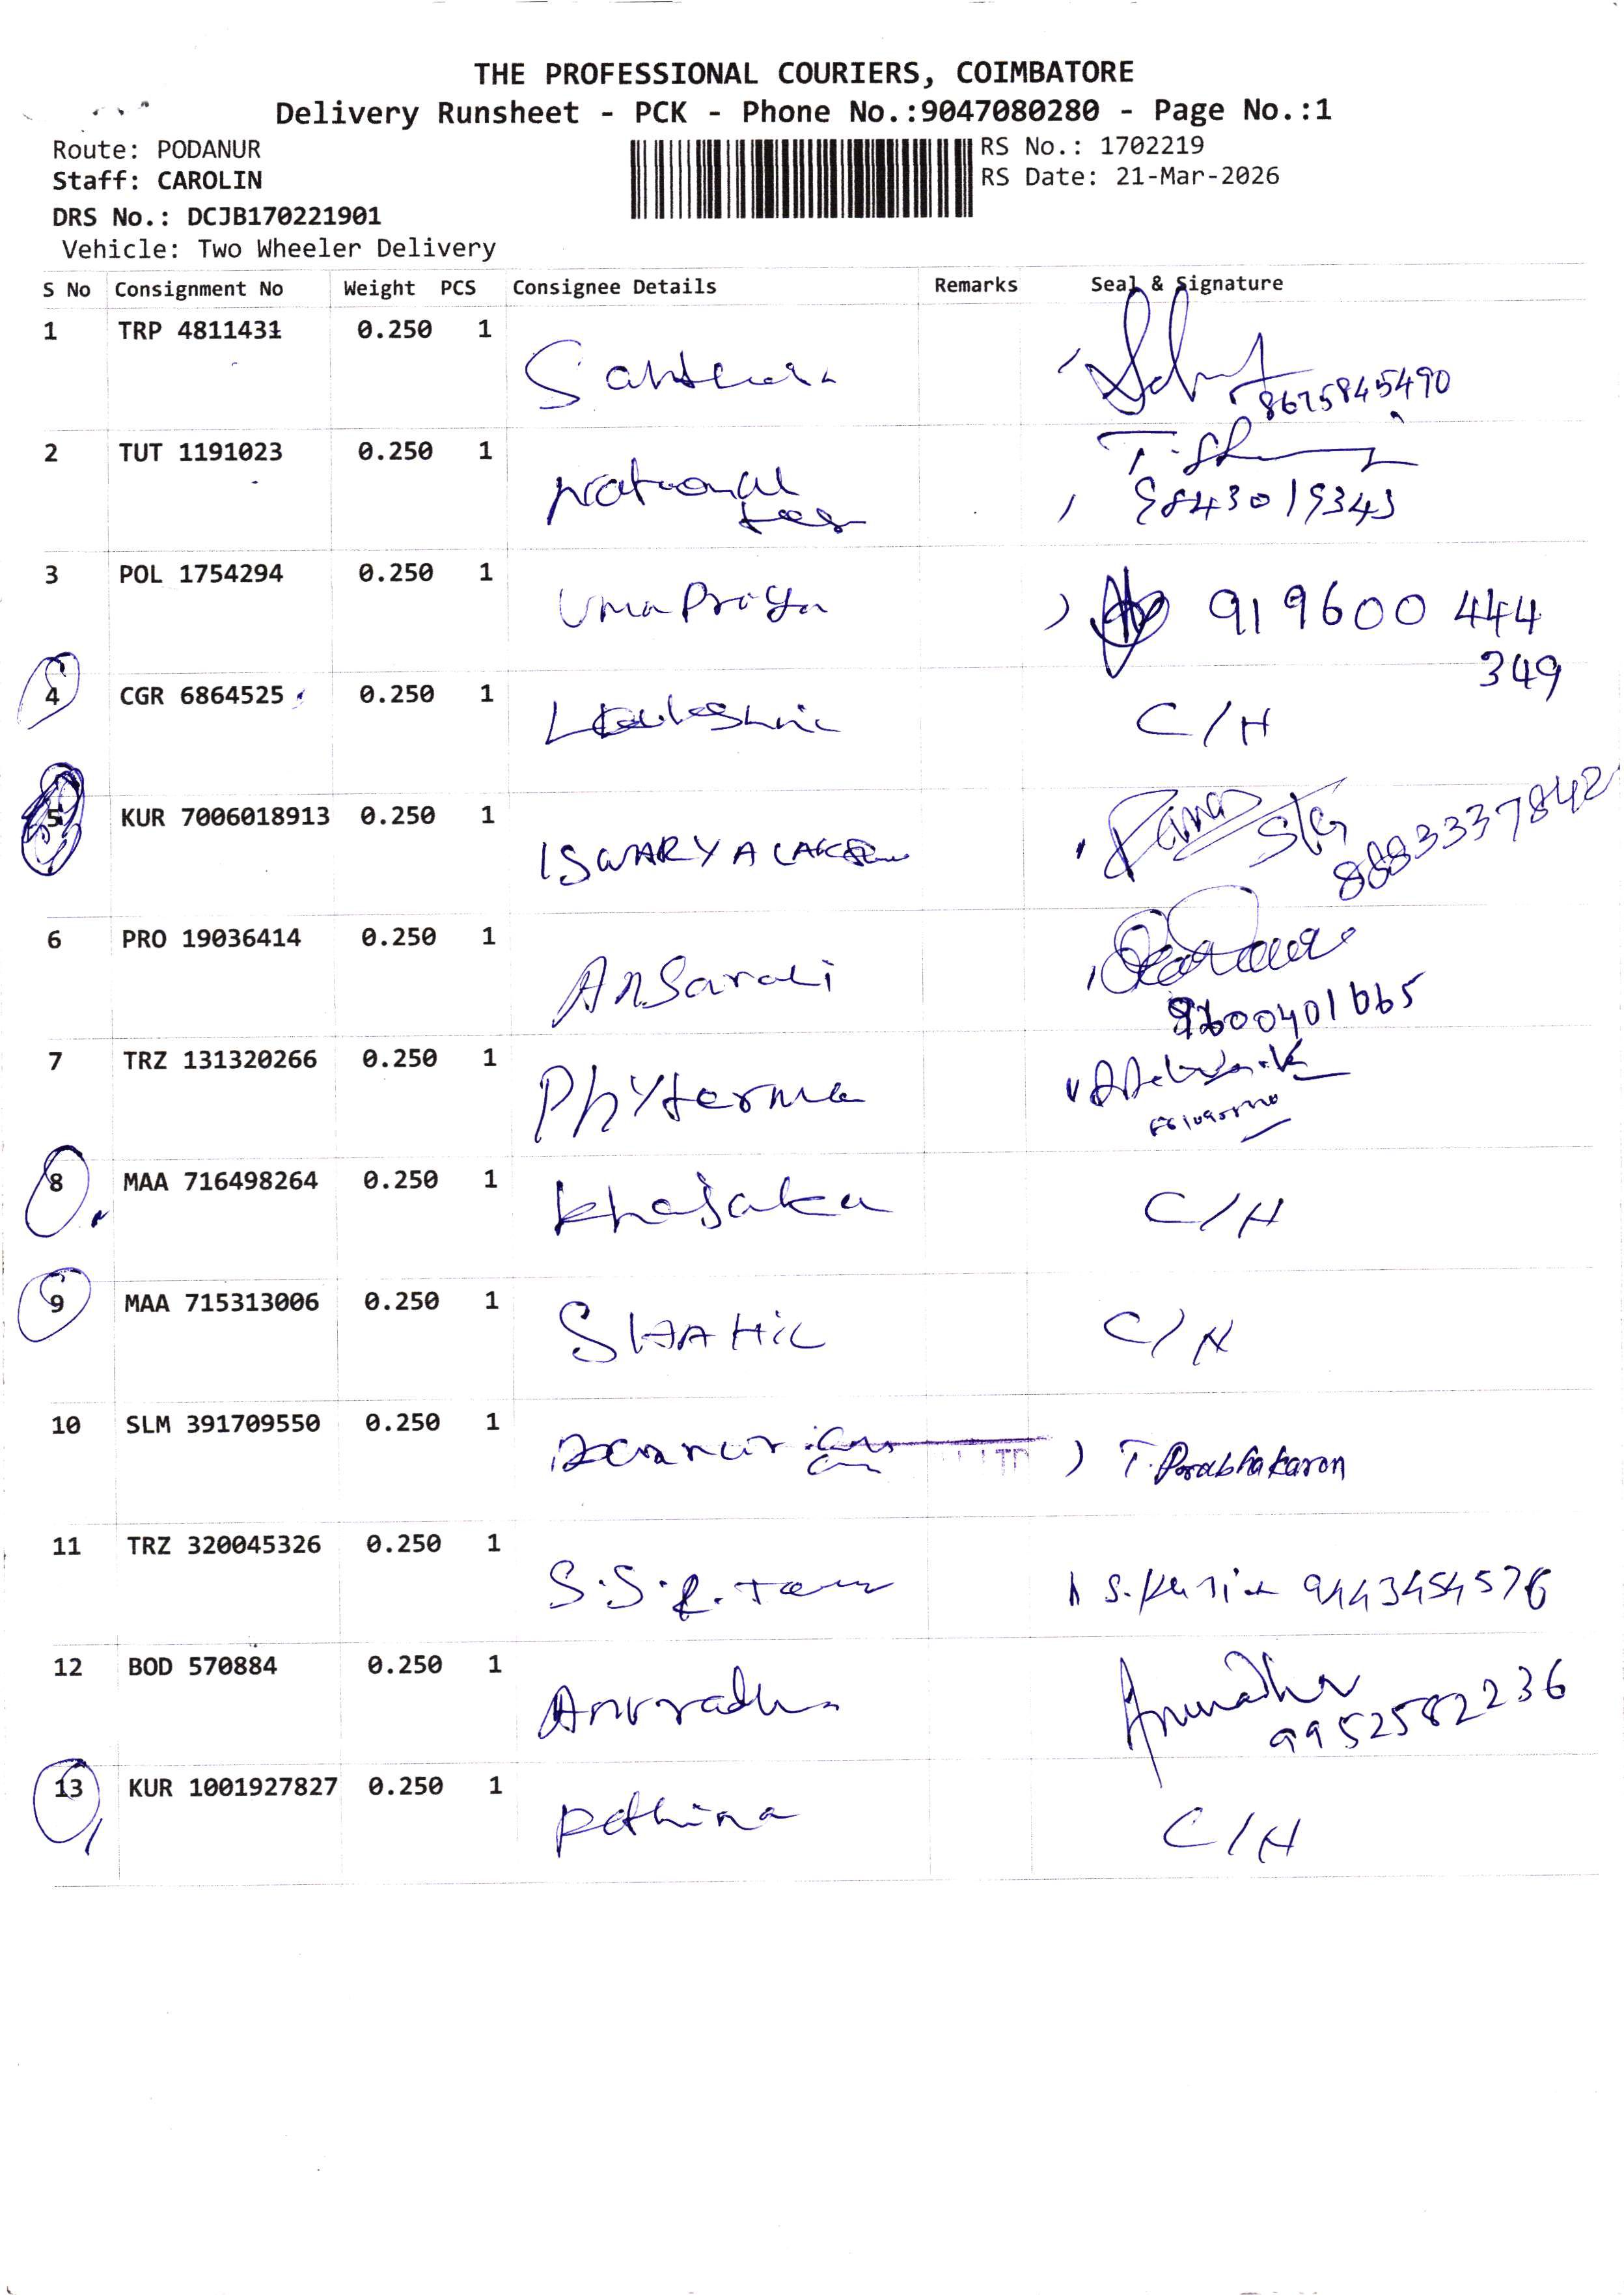 THE PROFESSIONAL COURIERS, COIMBATORE
Delivery Runsheet - PCK - Phone No.:9047080280 - Page No.:1
Route: PODANUR
RS No.: 1702219
Staff: CAROLIN
RS Date: 21-Mar-2026
DRS No.: DCJB170221901
Vehicle: Two Wheeler Delivery
S No Consignment No Weight PCS Consignee Details Remarks Seal & Signature
1 TRP 4811431 0.250 1
8675845490
2 TUT 1191023 0.250 1 National
9843019343
3 POL 1754294 0.250 1 Uma Priya 919600 444
349
4 CGR 6864525 0.250 1 C/H
5 KUR 7006018913 0.250 1
8883337842
6 PRO 19036414 0.250 1 Ansarali
9600401665
7 TRZ 131320266 0.250 1 Phyterma
8 MAA 716498264 0.250 1 C/H
9 MAA 715313006 0.250 1 SHAHIL C/H
10 SLM 391709550 0.250 1 T. Prabhakaran
11 TRZ 320045326 0.250 1 S.S.R. 9443454576
12 BOD 570884 0.250 1 Anuradha Anuradha
9952582236
13 KUR 1001927827 0.250 1 Pethina C/H